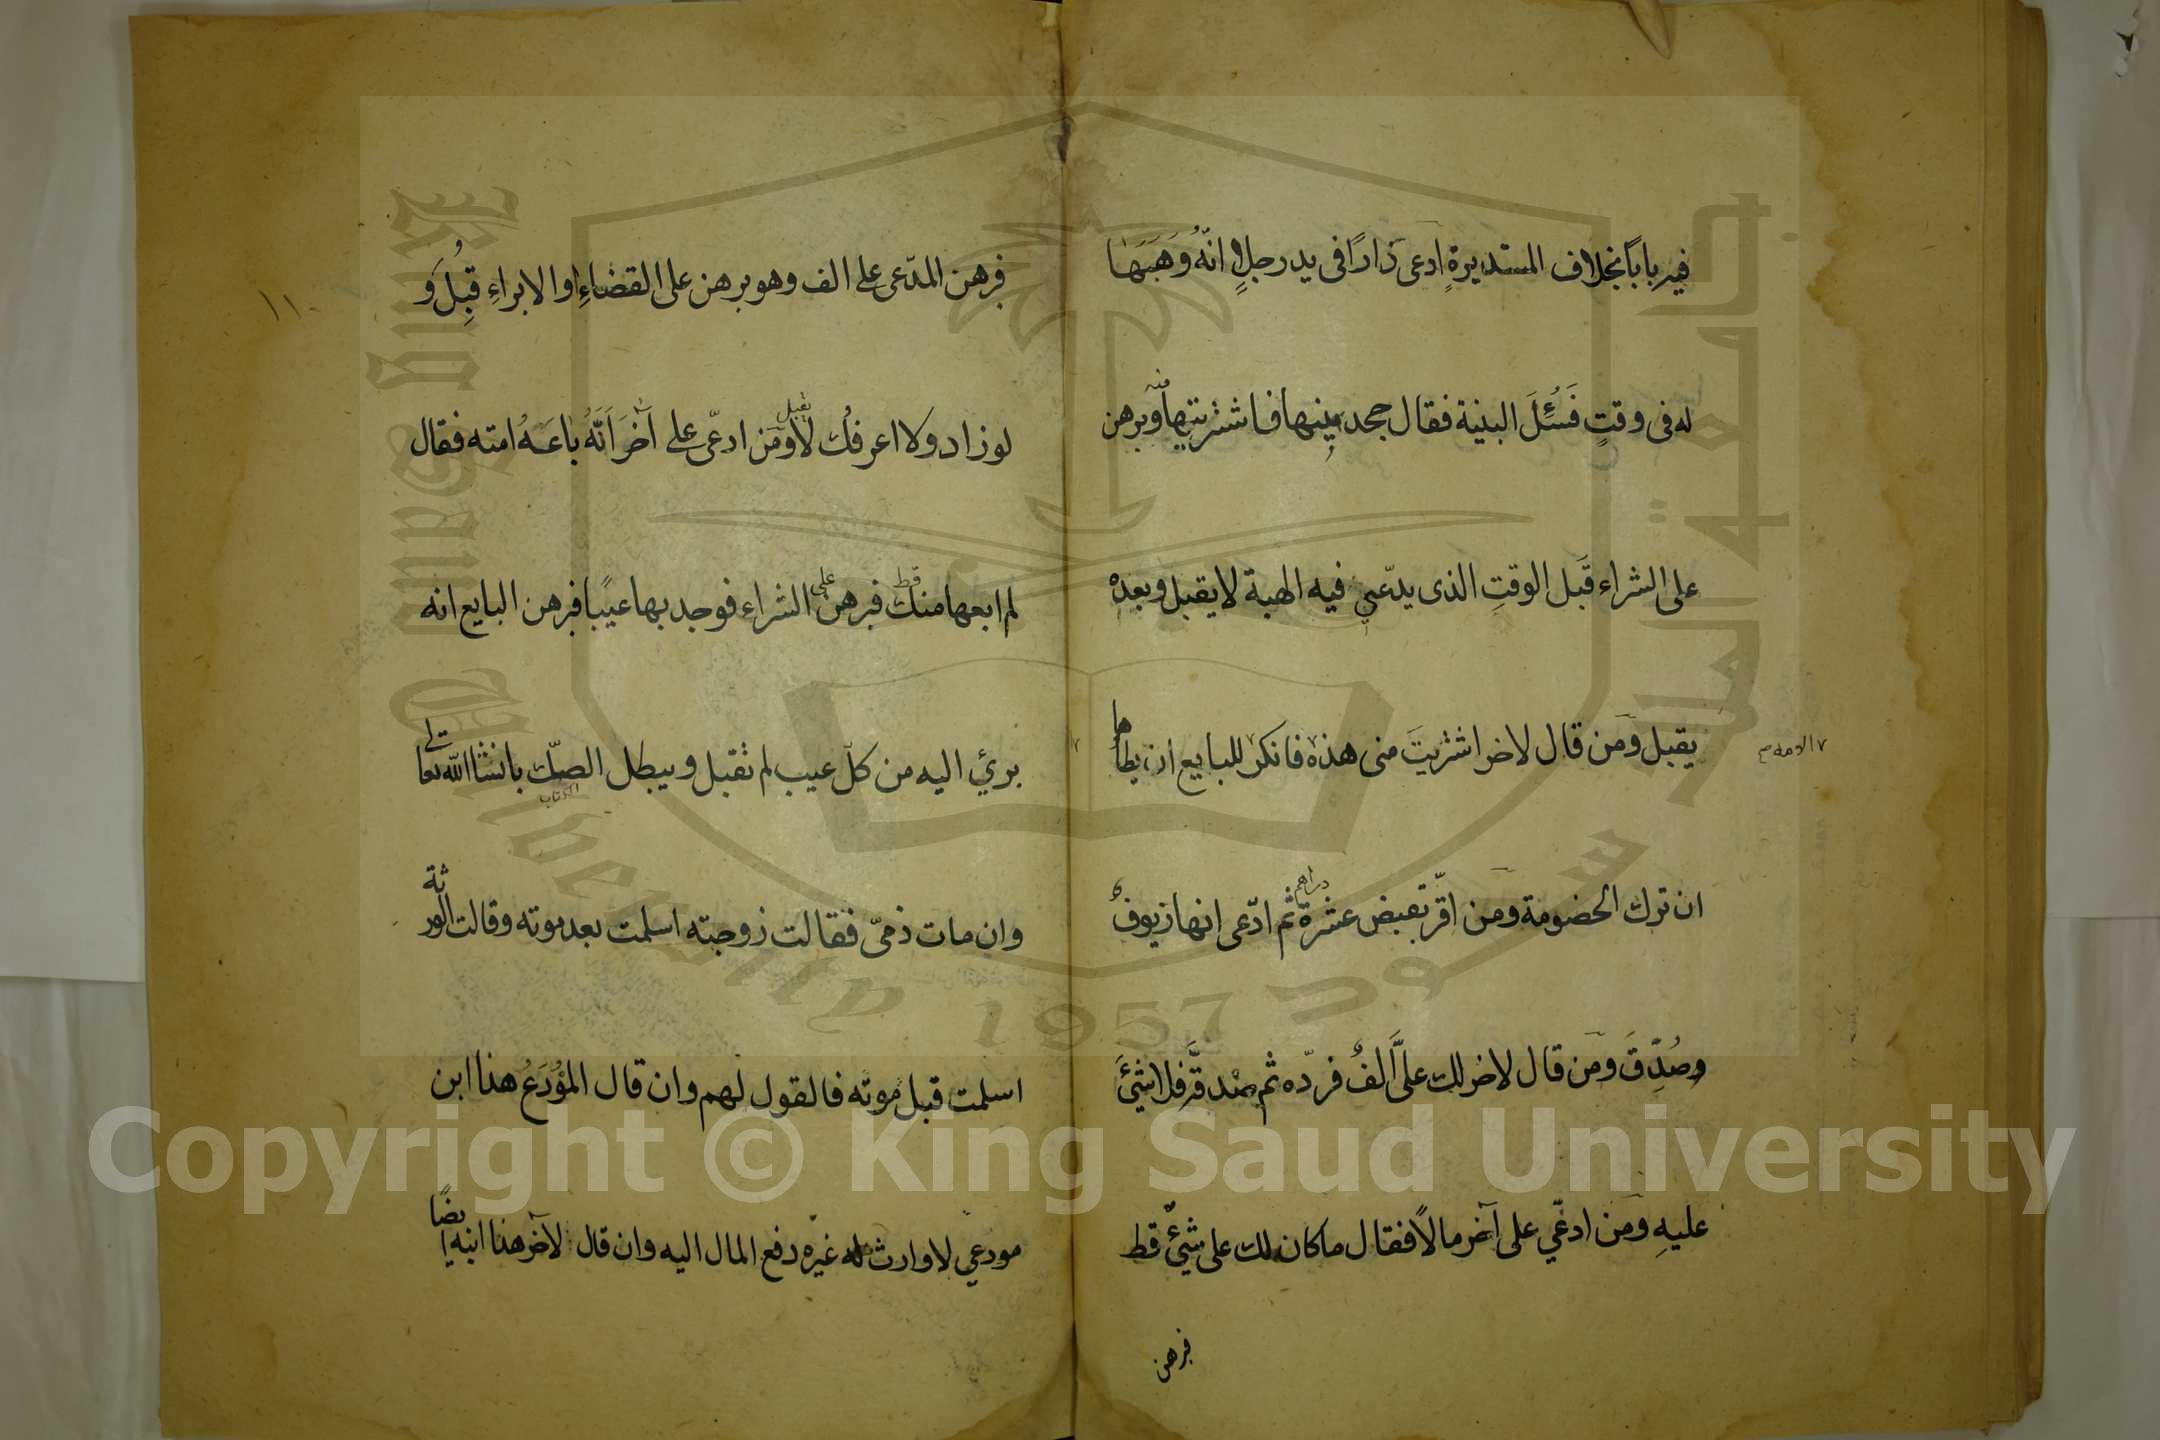 فيه بابًا بخلاف المستديرةِ ادعى دارًا فى يد رجلٍ انّهُ وَهَبَهَا
له فى وقتٍ فَسُئِلَ البينة فقال جحدنيها فاشتريتها منه وبرهن
على الشراء قَبل الوقتِ الذى يدّعى فيه الهبة لا يقبل وبعده
يقبل ومَن قال لاخر اشتريتَ منى هذه الامة فانكر للبايع ان يطأها
ان ترك الخصومة ومَن اقرّ بقبض عشرة دراهم ثم ادّعى انها زيوفٌ
وصُدِّقَ ومَن قال لاخر لك علىَّ الفٌ فردّه ثم صدقه فلا شئَ
عليهِ ومَن ادعّي على آخر مالاً فقال ما كان لك على شئٌ قط
فبرهن
١١
فبرهن المدّعى على الف وهو برهن على القضاءِ او الابراءِ قبِلَ و
لو زاد ولا اعرفك لا يقبل ومَن ادعّى على آخرَ اَنّهُ باعَهُ امته فقال
لم ابعها منك قط فبرهن على الشراء فوجد بها عيبًا فبرهن البايع انه
برئ اليه من كلّ عيب لم تقبل ويبطل الصكّ بانشا الله تعالى
الكتاب
وان مات ذمىّ فقالت زوجته اسلمت بعد موته وقالت الورثة
اسلمت قبل موته فالقول لهم وان قال المؤدَعُ هذا ابن
مودعي لا وارث له غيره دفع المال اليه وان قال لآخر هذا ابنه ايضًا
King Saud University
1957
جامعة الملك سعود
Copyright © King Saud University